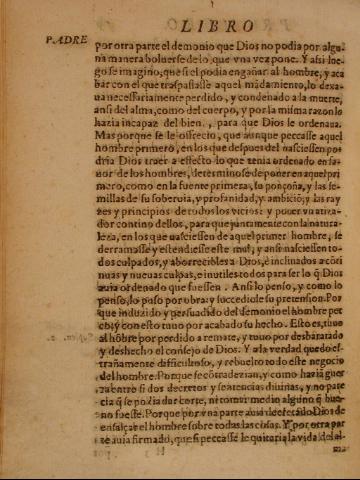 LIBRO
PADRE
por otra parte el demonio que Dios no podia por algu-
na manera boluerse de lo que vna vez pone. Y assi lue-
go se imaginò, que si el podia engañar al hombre, y aca
bar con el que traspassasse aquel mãdamiento, lo dexa-
ua necessariamente perdido, y condenado a la muerte,
ansi del alma, como del cuerpo, y por la misma razon lo
hazia incapaz del bien, para que Dios le ordenaua.
Mas porque se le offrecio, que aunque peccasse aquel
hombre primero, en los que despues del nasciessen po-
dria Dios traer a effecto lo que tenia ordenado en fa-
uor de los hombres, determinose de poner en aquel pri
mero, como en la fuente primera, su ponçoña, y las se-
millas de su soberuia, y profanidad, y ambiciõ, y las ray
zes y principios de todos los vicios: y poner vn atiza-
dor contino dellos, para que juntamente con la natura-
leza, en los que nasciessen de aquel primer hombre, se
derramasse y estendiesse este mal, y ansi nasciessen to-
dos culpados, y aborrecibles a Dios, è inclinados a cõti
nuas y nueuas culpas, e inutiles todos para ser lo q̃ Dios
auia ordenado que fuessen. Ansi lo penso, y como lo
penso, lo puso por obra: y succediole su pretension. Por
que induzido y persuadido del demonio el hombre pec
cò, y con esto tuuo por acabado su hecho. Esto es, tuuo
al hõbre por perdido a remate, y tuuo por desbaratado
y deshecho el consejo de Dios. Y a la verdad quedò es-
trañamente difficultoso, y rebuelto todo este negocio
del hombre. Porque se cõtradezian, y como hazian guer
ra entre si dos decretos y sentencias diuinas, y no pare
cia q̃ se podia dar corte, ni tomar medio alguno q̃ bue-
no fuesse. Porque por vna parte auia decretado Dios de
ensalçar el hombre sobre todas las cosas. Y por otra par
te auia firmado, que si peccasse le quitaria la vida del al-